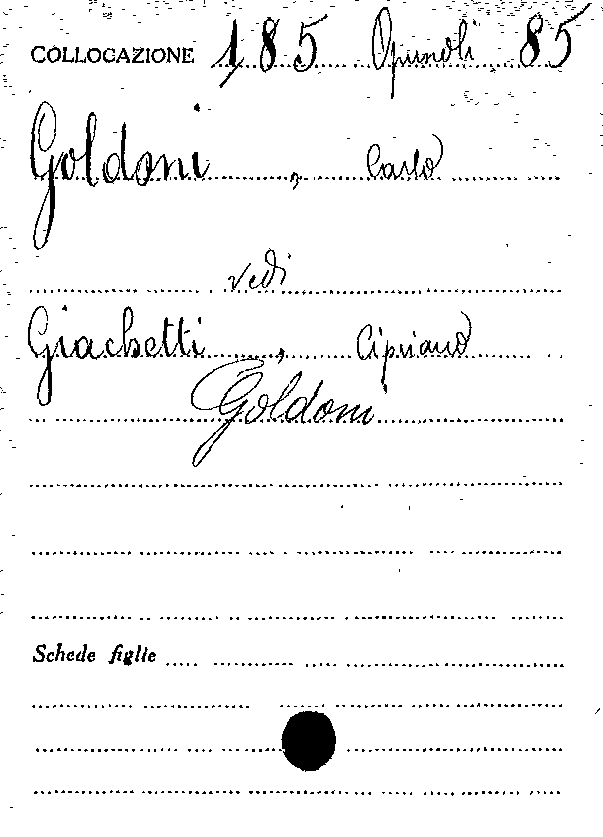 COLLOCAZIONE 185 Opuscoli 85
Goldoni, Carlo
vedi
Giachetti, Cipriano
Goldoni
Schede figlie